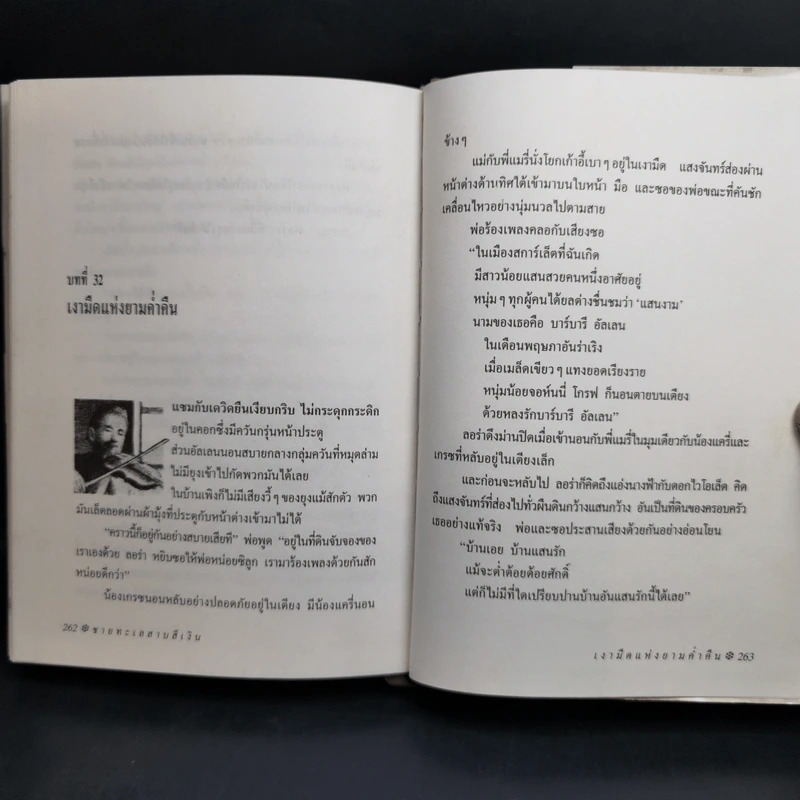 บทที่ 32
เงามืดแห่งยามค่ำคืน
แซมกับเดวิดยืนเงียบกริบ ไม่กระดุกกระดิก
อยู่ในคอกซึ่งมีควันกรุ่นหน้าประตู
ส่วนอัลเลนนอนสบายกลางกลุ่มควันที่หมุดล่าม
ไม่มียุงเข้าไปกัดพวกมันได้เลย
ในบ้านเพิงก็ไม่มีเสียงวี้ๆ ของยุงแม้สักตัว พวก
มันเล็ดลอดผ่านผ้ามุ้งที่ประตูกับหน้าต่างเข้ามาไม่ได้
“คราวนี้ก็อยู่กันอย่างสบายเสียที” พ่อพูด “อยู่ในที่ดินจับจองของ
เราเองด้วย ลอร่า หยิบซอให้พ่อหน่อยซิลูก เรามาร้องเพลงด้วยกันสัก
หน่อยดีกว่า”
น้องเกรซนอนหลับอย่างปลอดภัยอยู่ในเตียง มีน้องแครี่นอน
262 ❄ ชายทะเลสาบสีเงิน
ข้างๆ
แม่กับพี่แมรี่นั่งโยกเก้าอี้เบาๆ อยู่ในเงามืด แสงจันทร์ส่องผ่าน
หน้าต่างด้านทิศใต้เข้ามาบนใบหน้า มือ และซอของพ่อขณะที่คันชัก
เคลื่อนไหวอย่างนุ่มนวลไปตามสาย
พ่อร้องเพลงคลอกับเสียงซอ
“ในเมืองสการ์เล็ตที่ฉันเกิด
มีสาวน้อยแสนสวยคนหนึ่งอาศัยอยู่
หนุ่มๆ ทุกผู้คนได้ยลต่างชื่นชมว่า ‘แสนงาม’
นามของเธอคือ บาร์บารี อัลเลน
ในเดือนพฤษภาอันร่าเริง
เมื่อเมล็ดเขียวๆ แทงยอดเรียงราย
หนุ่มน้อยจอห์นนี่ โกรฟ ก็นอนตายบนเตียง
ด้วยหลงรักบาร์บารี อัลเลน”
ลอร่าดึงม่านปิดเมื่อเข้านอนกับพี่แมรี่ในมุมเดียวกับน้องแครี่และ
เกรซที่หลับอยู่ในเตียงเล็ก
และก่อนจะหลับไป ลอร่าก็คิดถึงแอ่งนางฟ้ากับดอกไวโอเล็ต คิด
ถึงแสงจันทร์ที่ส่องไปทั่วผืนดินกว้างแสนกว้าง อันเป็นที่ดินของครอบครัว
เธออย่างแท้จริง พ่อและซอประสานเสียงด้วยกันอย่างอ่อนโยน
“บ้านเอย บ้านแสนรัก
แม้จะต่ำต้อยด้อยศักดิ์
แต่ก็ไม่มีที่ใดเปรียบปานบ้านอันแสนรักนี้ได้เลย”
เงามืดแห่งยามค่ำคืน ❄ 263